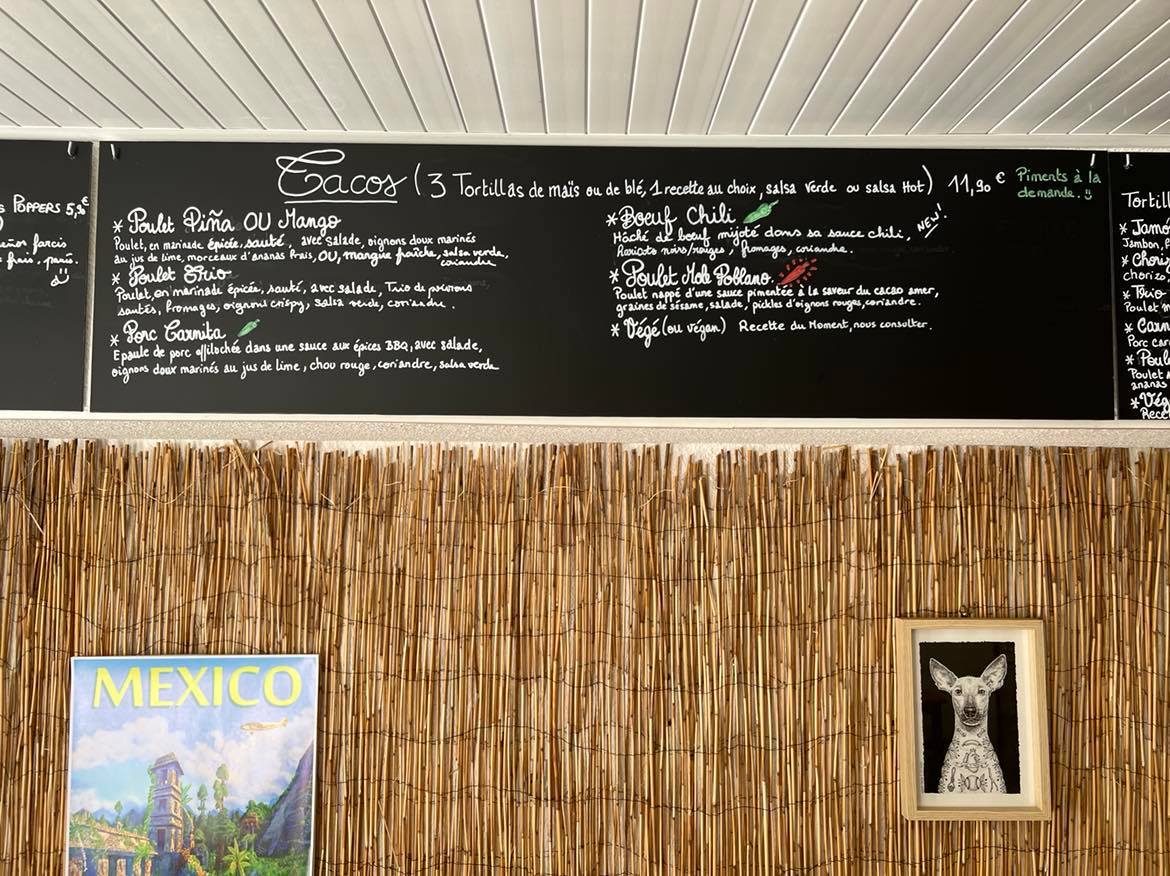 POPPERS 5,90€
farcis
frais, panés.
Tacos (3 Tortillas de maïs ou de blé, 1 recette au choix, salsa verde ou salsa Hot) 11,90 € Piments à la
demande.
* Poulet Piña OU Mango
Poulet, en marinade épicée, sauté, avec salade, oignons doux marinés
au jus de lime, morceaux d'ananas frais, OU, mangue fraîche, salsa verde,
coriandre
* Poulet Trio
Poulet, en marinade épicée, sauté, avec salade, Trio de poivrons
sautés, fromages, oignons crispy, salsa verde, coriandre.
* Porc Carnita
Epaule de porc effilochée dans une sauce aux épices BBQ, avec salade,
oignons doux marinés au jus de lime, chou rouge, coriandre, salsa verde
* Boeuf Chili
NEW!
Hâché de boeuf mijoté dans sa sauce chili,
Haricots noirs/rouges, fromages, coriandre.
* Poulet Mole Poblano.
Poulet nappé d'une sauce pimentée à la saveur du cacao amer,
graines de sésame, salade, pickles d'oignons rouges, coriandre.
* Végé (ou végan) Recette du Moment, nous consulter.
Tortill
* Jamo
Jambon, P
* Choriz
chorizo,
* Trio
Poulet m
* Carn
Porc car
* Poul
Poulet
ananas
* Vég
Rece
MEXICO